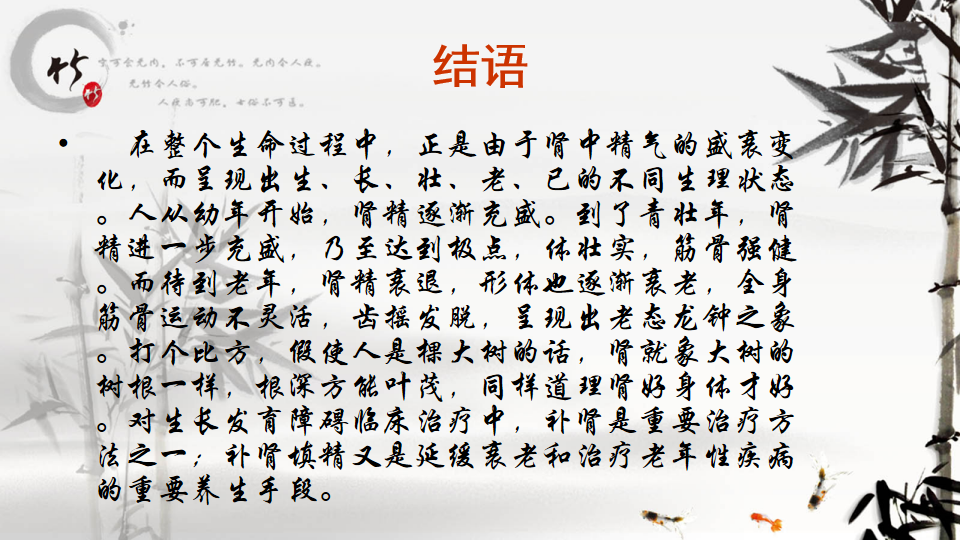 结语
竹
竹
宁可食无肉，不可居无竹。无肉令人瘦，
无竹令人俗。
人瘦尚可肥，士俗不可医。
• 在整个生命过程中，正是由于肾中精气的盛衰变
化，而呈现出生、长、壮、老、已的不同生理状态
。人从幼年开始，肾精逐渐充盛。到了青壮年，肾
精进一步充盛，乃至达到极点，体壮实，筋骨强健
。而待到老年，肾精衰退，形体也逐渐衰老，全身
筋骨运动不灵活，齿摇发脱，呈现出老态龙钟之象
。打个比方，假使人是棵大树的话，肾就象大树的
树根一样，根深方能叶茂，同样道理肾好身体才好
。对生长发育障碍临床治疗中，补肾是重要治疗方
法之一；补肾填精又是延缓衰老和治疗老年性疾病
的重要养生手段。